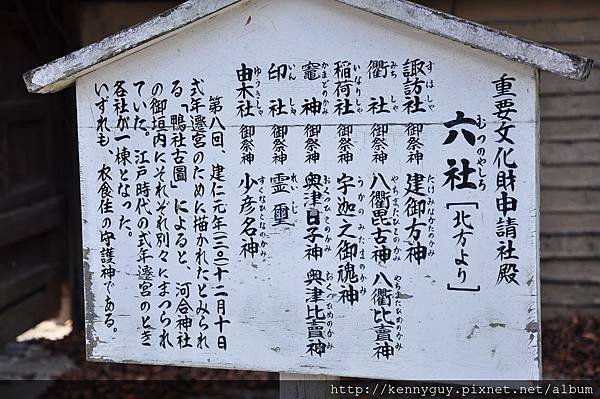 重要文化財申請社殿
六社[北方より]
むつのやしろ
諏訪社 御祭神 建御方神
すはしゃ たけみなかたのかみ
衢社 御祭神 八衢毘古神 八衢比賣神
みちしゃ やちまたひこのかみ やちまたひめのかみ
稲荷社 御祭神 宇迦之御魂神
いなりしゃ うかのみたまのかみ
竈神 御祭神 奥津日子神 奥津比賣神
かまどのかみ おくつひこのかみ おくつひめのかみ
印社 御祭神 霊璽
いんしゃ れいじ
由木社 御祭神 少彦名神
ゆうきしゃ すくなひこなのかみ
第八回、建仁元年(三〇)十二月十日
式年遷宮のために描かれたとみられ
る「鴨社古図」によると、河合神社
の御垣内にそれぞれ別々にまつられ
ていた。江戸時代の式年遷宮のとき
各社が一棟となった。
いずれも、衣食住の守護神である。
http://kennyguy.pixnet.net/album